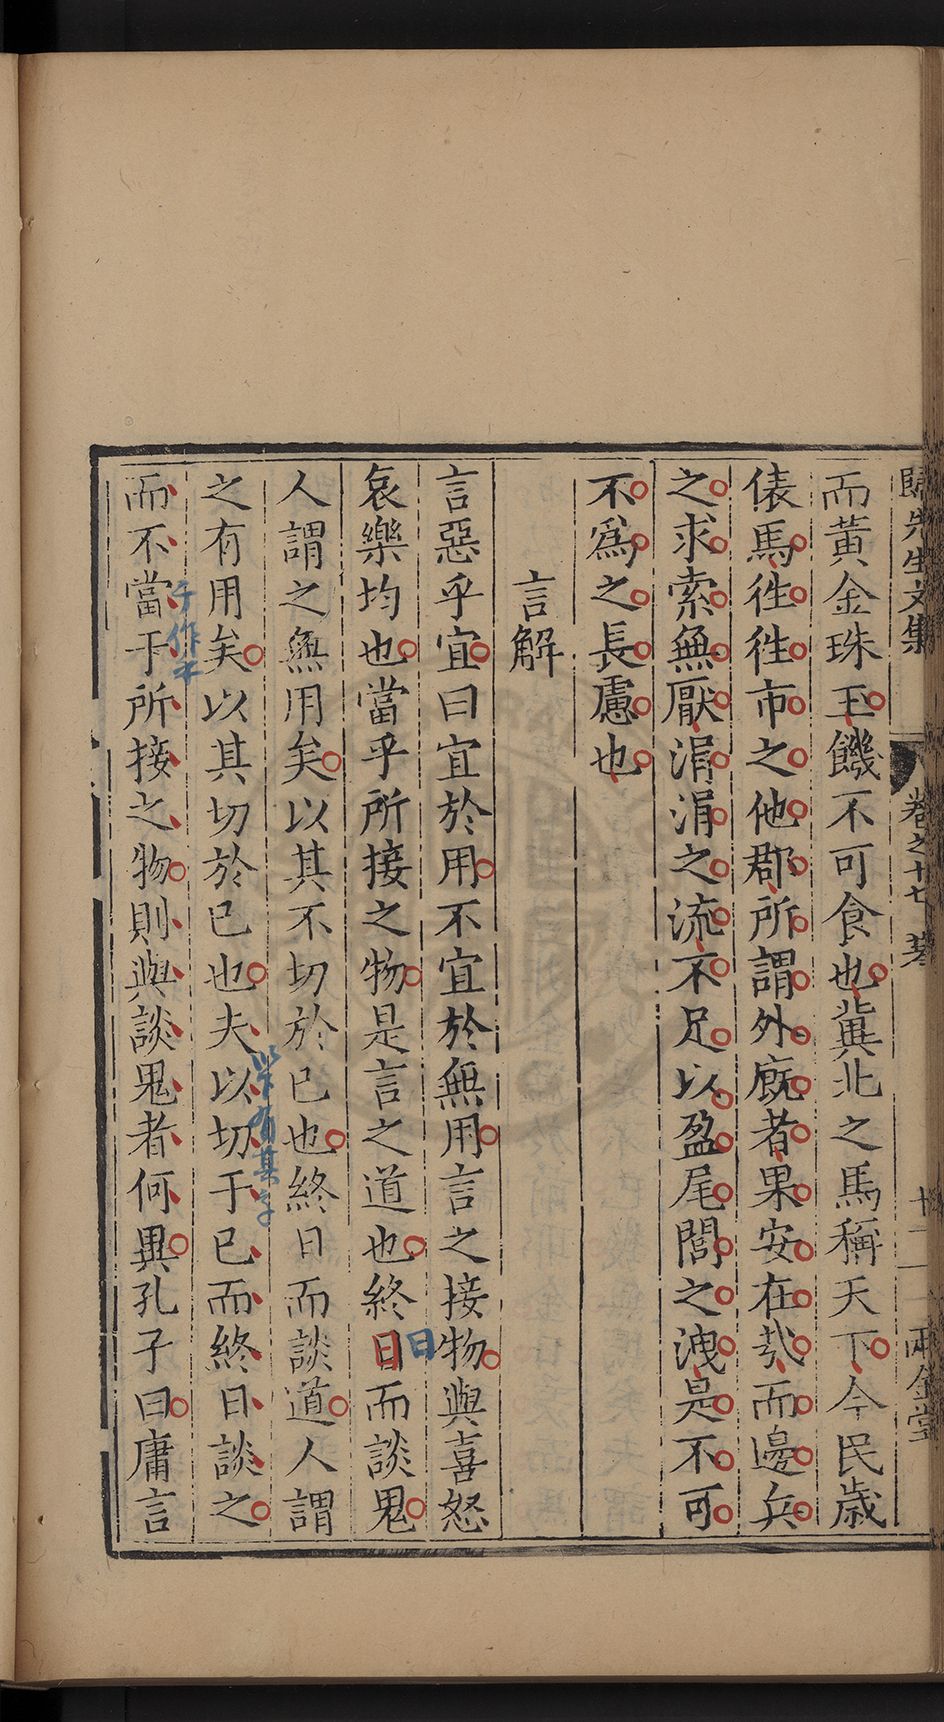 歸先生文集
卷之十七 著
十二
兩金堂
而黃金珠玉饑不可食也冀北之馬稱天下今民歲
俵馬徃徃市之他郡所謂外廐者果安在㢤而邊兵
之求索無厭涓涓之流不足以盈尾閭之洩是不可
不爲之長慮也
言解
言惡乎宜曰宜於用不宜於無用言之接物與喜怒
哀樂均也當乎所接之物是言之道也終日而談鬼
日
人謂之無用矣以其不切於已也終日而談道人謂
之有用矣以其切於已也夫以切于已而終日談之
以下有其字
而不當于所接之物則與談鬼者何異孔子曰庸言
于作乎